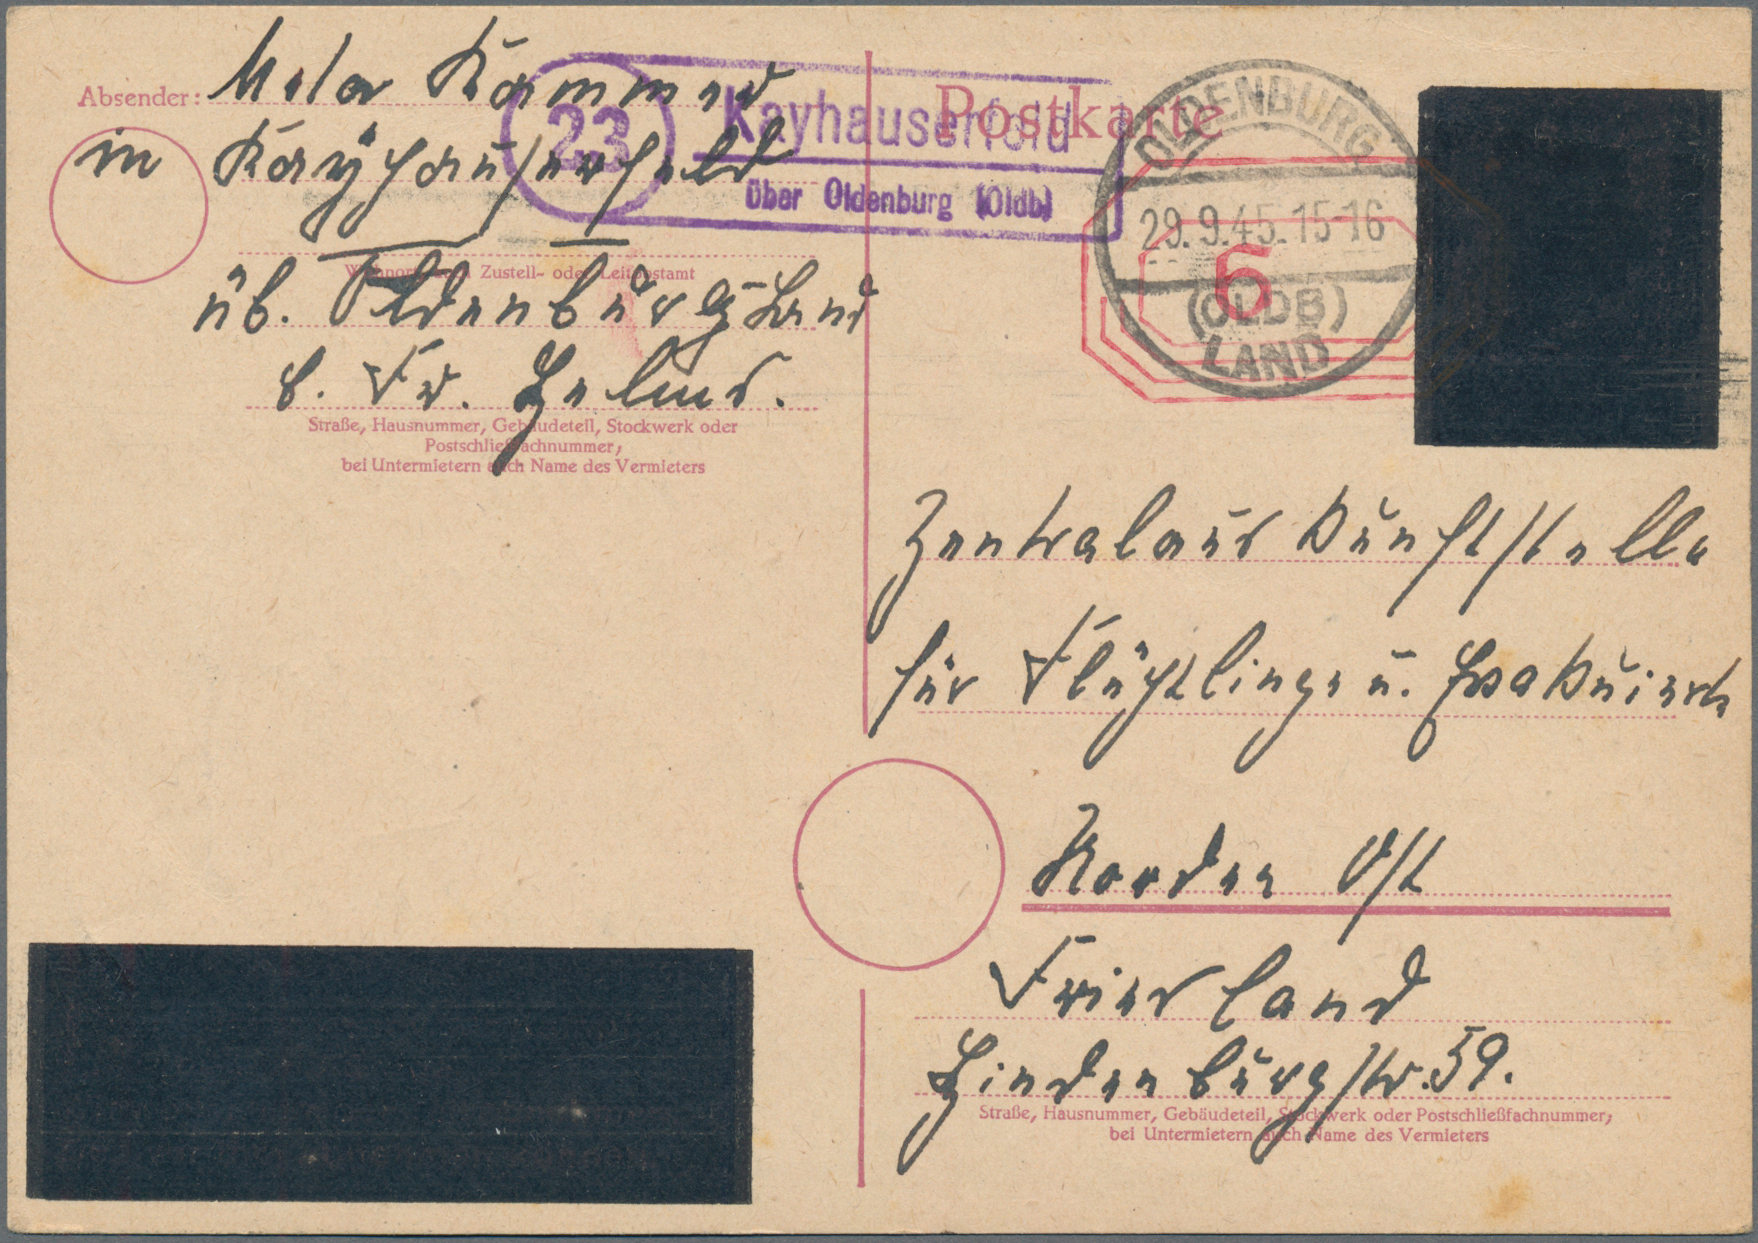 Postkarte
Absender: Meta Kammer
in Kayhauserfeld
Wohnort, auch Zustell- oder Leitpostamt
üb. Oldenburg Land
b. Fr. Helms.
Straße, Hausnummer, Gebäudeteil, Stockwerk oder
Postschließfachnummer,
bei Untermietern auch Name des Vermieters
23
Kayhauserfeld
über Oldenburg (Oldb)
OLDENBURG
29.9.45.15-16
(OLDB)
LAND
6
Zentralauskunftstelle
für Flüchtlinge u. Evakuierte
Norden Ost
Friesland
Hindenburgstr. 59.
Straße, Hausnummer, Gebäudeteil, Stockwerk oder Postschließfachnummer,
bei Untermietern auch Name des Vermieters